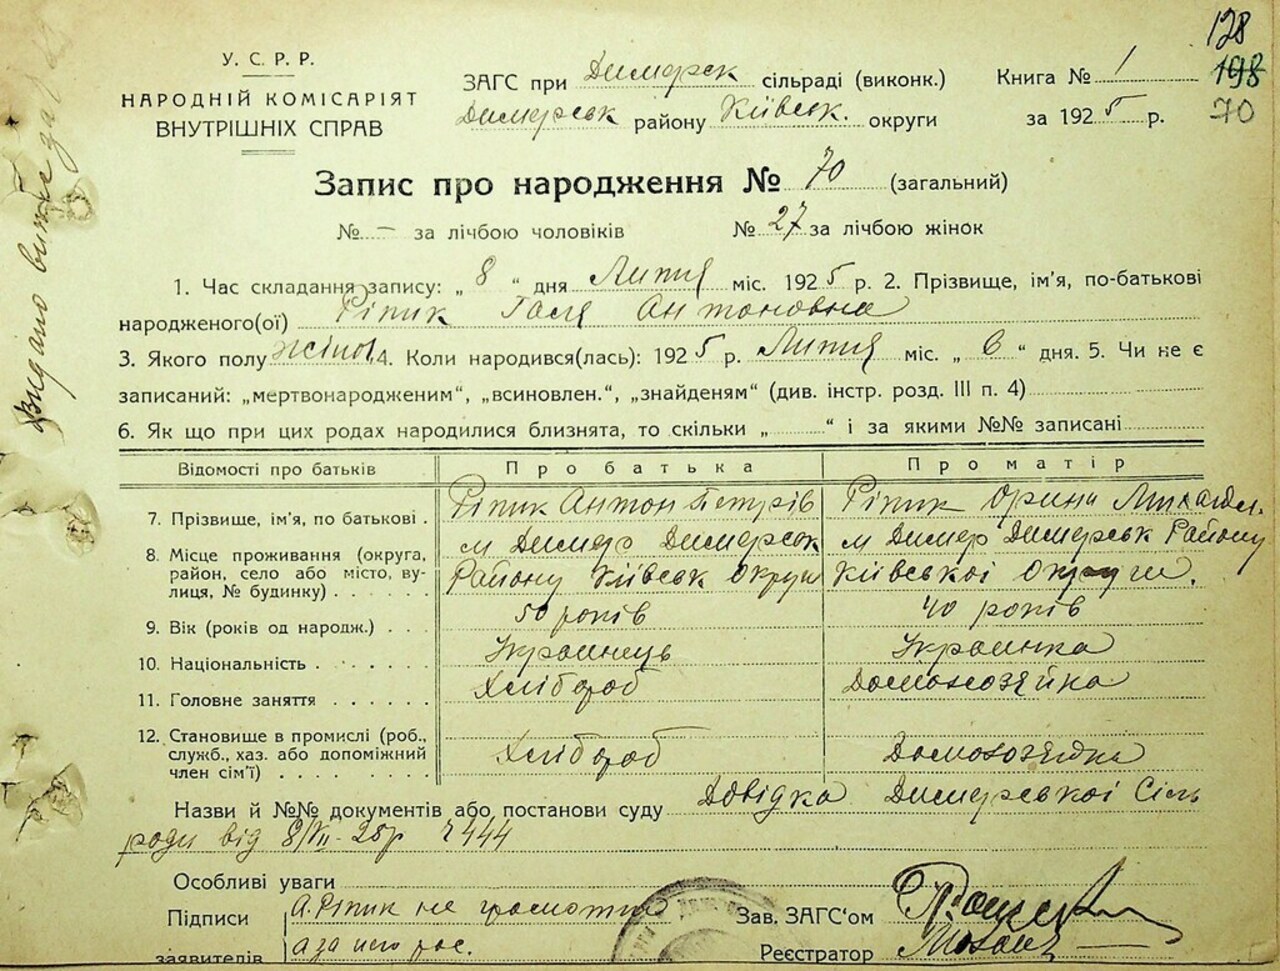 128
198
70
У. С. Р. Р.
НАРОДНІЙ КОМІСАРІЯТ
ВНУТРІШНІХ СПРАВ
ЗАГС при Димерск сільраді (виконк.)
Димерськ району Київськ. округи
Книга № 1
за 1925 р.
Запис про народження № 70 (загальний)
№ – за лічбою чоловіків № 27 за лічбою жінок
1. Час складання запису: „ 8 “ дня Липня міс. 1925 р. 2. Прізвище, ім'я, по-батькові
народженого(ої) Ріпик Галя Антоновна
3. Якого полу жіноч. 4. Коли народився(лась): 1925 р. Липня міс. „ 6 “ дня. 5. Чи не є
записаний: „мертвонародженим“, „всиновлен.“, „знайденям“ (див. інстр. розд. III п. 4)
6. Як що при цих родах народилися близнята, то скільки „ “ і за якими №№ записані
Відомості про батьків Про батька Про матір
7. Прізвище, ім'я, по батькові . Ріпик Антон Петрів Ріпик Орина Михайл.
8. Місце проживання (округа, м Димер Димерськ м Димер Димерськ Району
район, село або місто, ву- Району Київськ Округи Київської Округи.
лиця, № будинку) . . . . .
9. Вік (років од народж.) . . . 50 років 40 років
10. Національність . . . . . . Украинець Украинка
11. Головне заняття . . . . . . Хлібороб Домохозяйка
12. Становище в промислі (роб.,
служб., хаз. або допоміжний Хлібороб Домохозяйка
член сім'ї) . . . . . . . .
Назви й №№ документів або постанови суду Довідка Димерської Сіль
ради від 8/VII-25р 444
Особливі уваги
Підписи А. Ріпик не грамотни
заявителів а за него рос.
Зав. ЗАГС'ом
Реєстратор
Видано